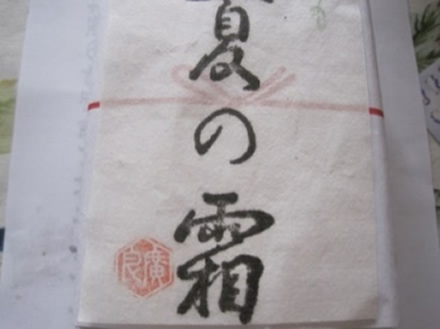 夏の霜
廣良